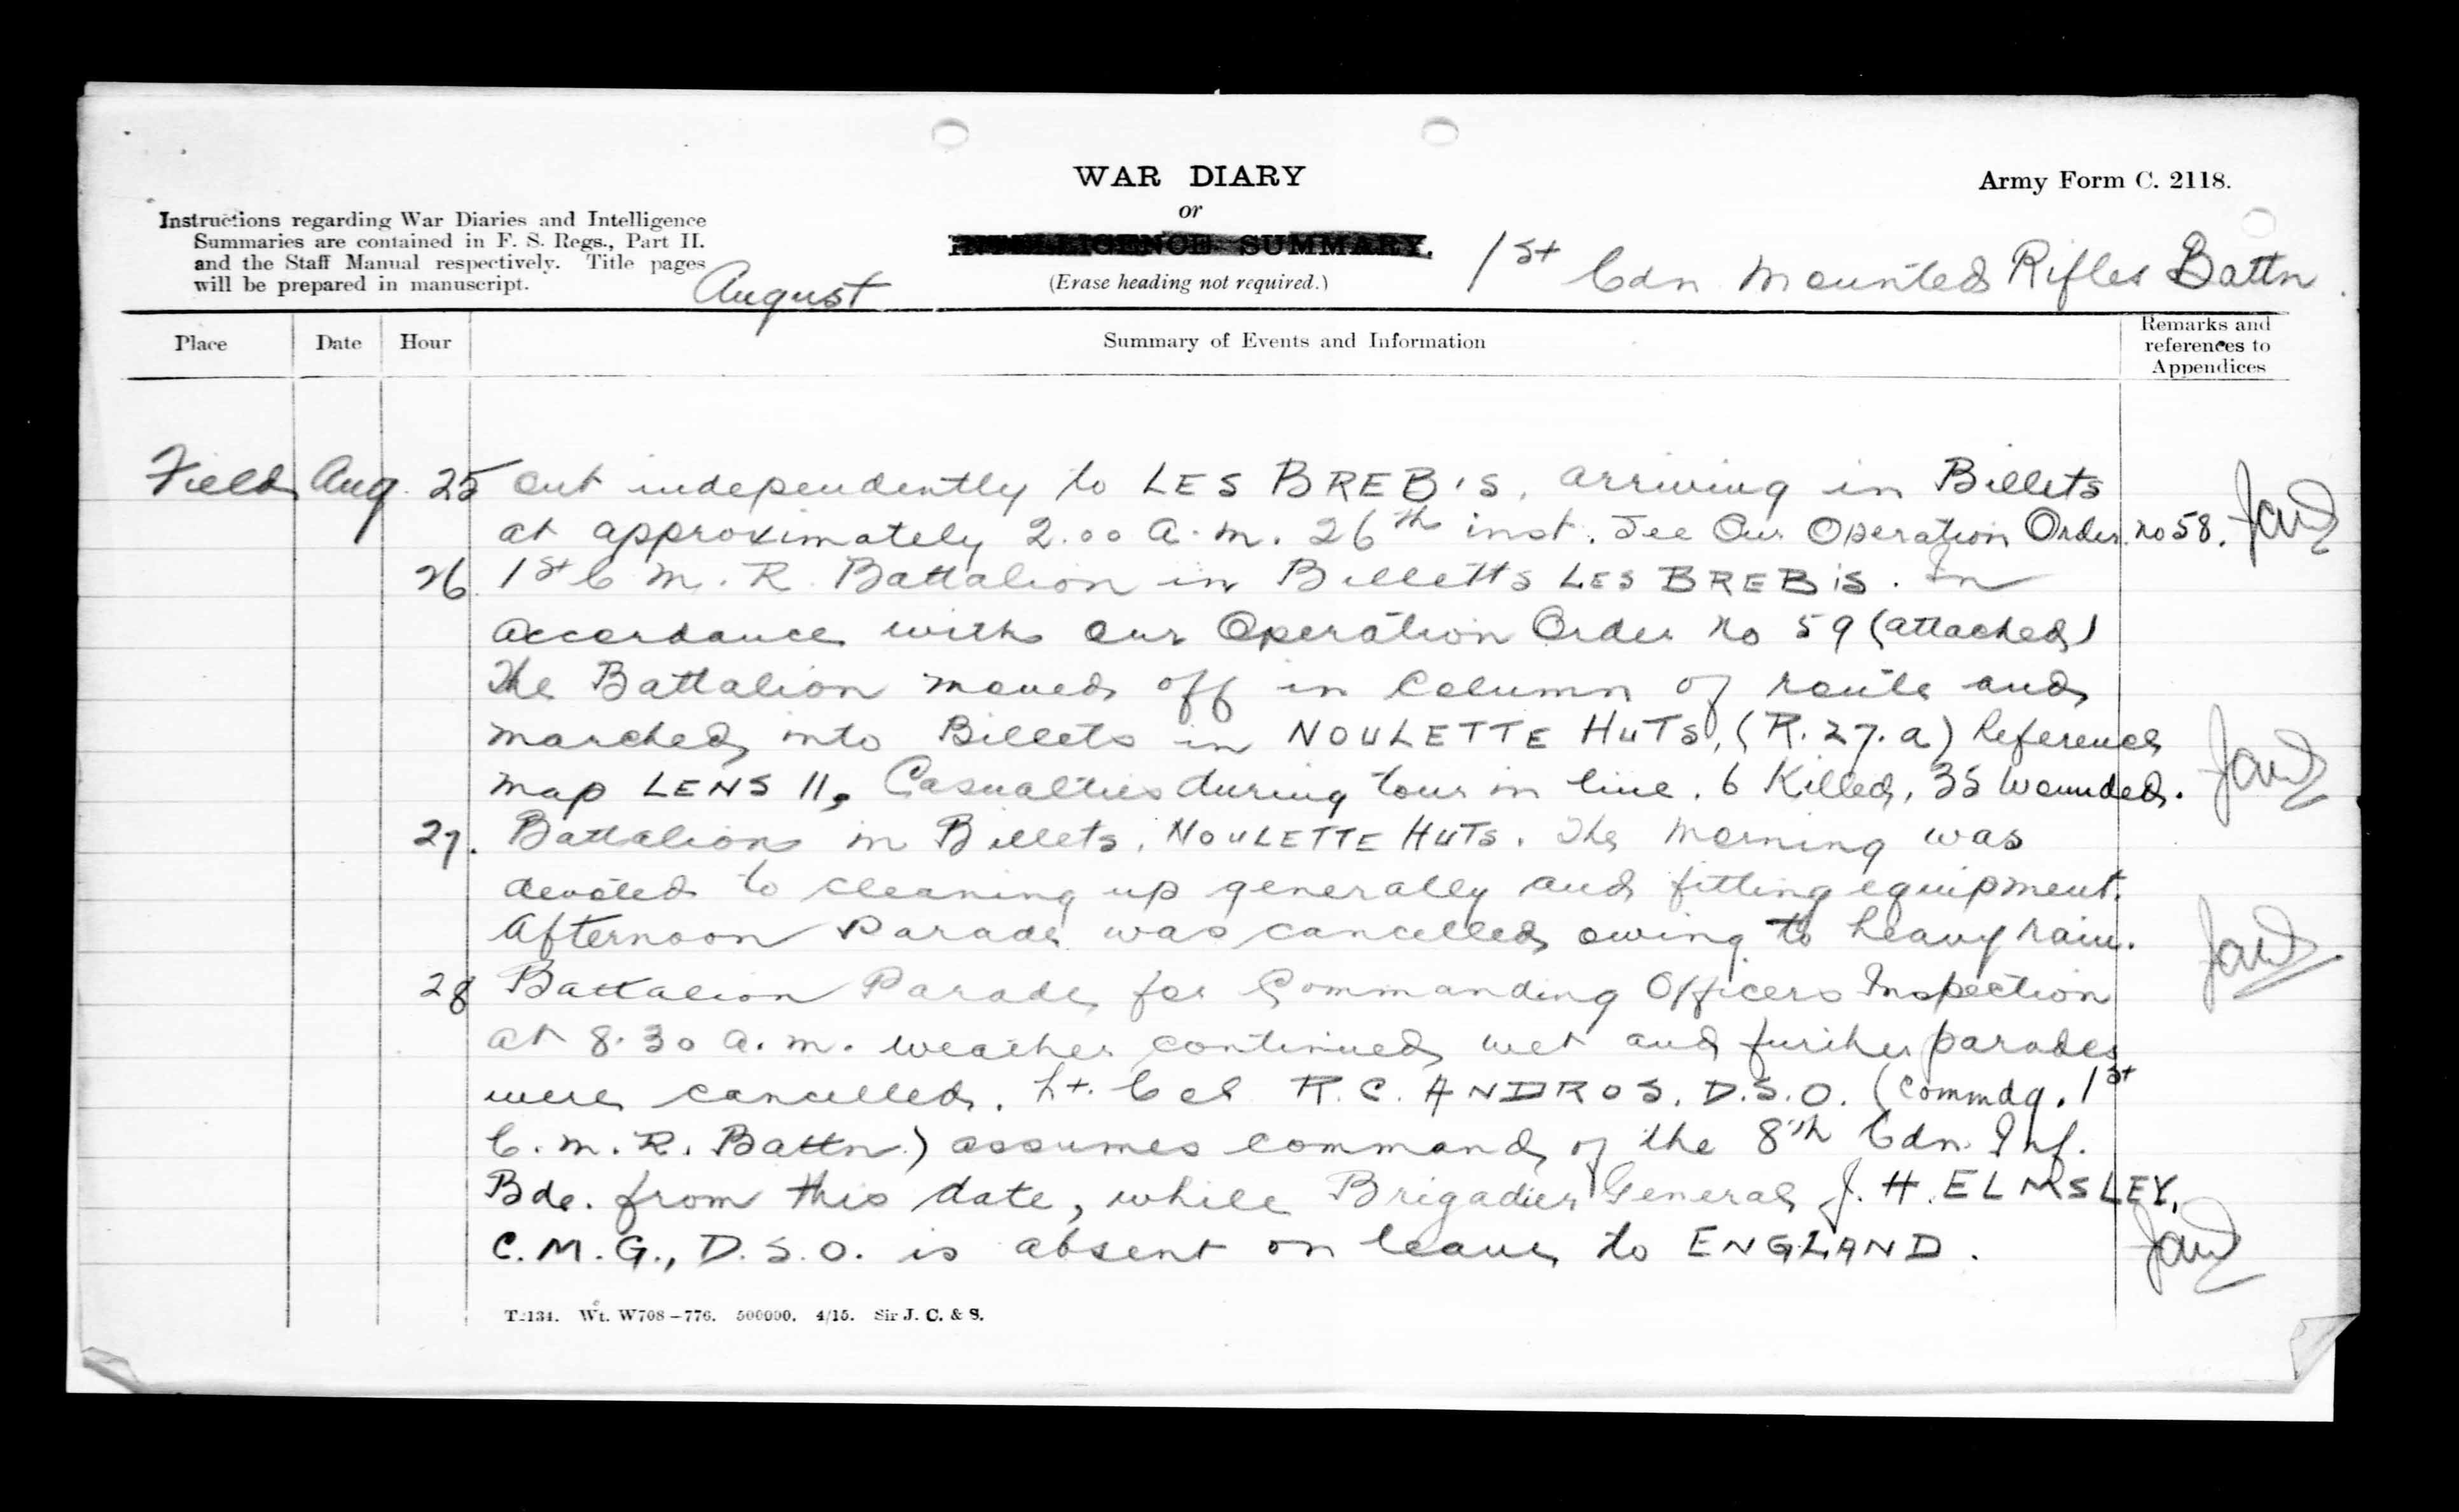 WAR DIARY
or
INTELLIGENCE SUMMARY.
(Erase heading not required.)
Army Form C. 2118.
Instructions regarding War Diaries and Intelligence
Summaries are contained in F. S. Regs., Part II.
and the Staff Manual respectively. Title pages
will be prepared in manuscript.
August
1st Cdn Mounted Rifles Battn
Place Date Hour Summary of Events and Information Remarks and
references to
Appendices
Field Aug. 25 out independently to LES BREBIS, arriving in Billets
at approximately 2.00 a.m. 26th inst. See Our Operation Order no 58.
26. 1st C.M.R. Battalion in Billetts LES BREBIS. In
accordance with our Operation Order No 59 (attached)
The Battalion moved off in Column of route and
marched into Billets in NOULETTE HUTS, (R.27.a) Reference
map LENS 11, Casualties during tour in line. 6 Killed, 35 Wounded.
27. Battalion in Billets, NOULETTE HUTS. The morning was
devoted to cleaning up generally and fitting equipment.
Afternoon Parade was cancelled owing to heavy rain.
28 Battalion Parade for Commanding Officers Inspection
at 8.30 a.m. weather continued wet and further parades
were cancelled. Lt. Col R.C. ANDROS, D.S.O. (Commdg. 1st
C.M.R. Battn.) assumes command of the 8th Cdn. Inf.
Bde. from this date, while Brigadier General J.H. ELMSLEY,
C.M.G., D.S.O. is absent on leave to ENGLAND.
Wt. W708–776. 500000. 4/15. Sir J. C. & S.